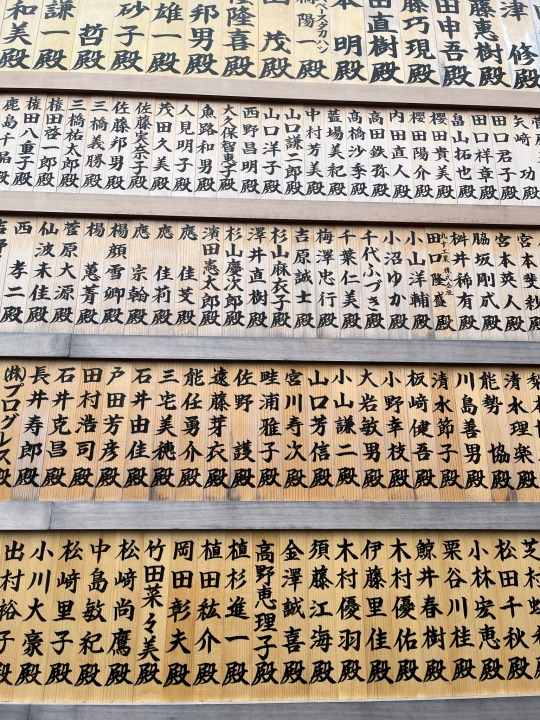 津 修殿
藤恵樹殿
田申吾殿
藤巧現殿
田直樹殿
本 明殿
陽一殿
山 茂殿
隆喜殿
邦男殿
雄一殿
砂子殿
哲殿
謙一殿
和美殿
矢崎 功殿
田口君子殿
田口祥章殿
畠山拓也殿
櫻田貴美殿
櫻田陽介殿
内田直人殿
高田鉄弥殿
高橋沙季殿
藍場美紀殿
中村芳美殿
山口謙二郎殿
山口洋子殿
西野昌明殿
大久保智恵子殿
魚路和男殿
人見明子殿
茂田久美殿
佐藤美奈子殿
佐藤邦男殿
三橋義勝殿
三橋祐太郎殿
権田啓一郎殿
権田八重子殿
鹿島千
宮本英人殿
脇坂剛貮殿
桝井稀有殿
田口隆盛殿
小山洋輔殿
小沼ゆか殿
千代ふづき殿
千葉仁美殿
梅澤忠行殿
吉原誠士殿
杉山麻衣子殿
澤井直樹殿
杉山慶次郎殿
濱田憲太郎殿
應 佳殿
應 佳莉殿
應 宗翰殿
楊顔雪卿殿
楊 蕙菁殿
菅原大源殿
仙波未佳殿
西 孝二殿
清水理楽殿
能勢 協殿
川島善男殿
清水節子殿
板﨑健吾殿
小野幸枝殿
大岩敏男殿
小山謙二殿
山口芳信殿
宮川寿次殿
畦浦雅子殿
佐野 護殿
遠藤芽衣殿
能任勇介殿
三宅美穂殿
石井由佳殿
戸田芳彦殿
田村浩司殿
石井克昌殿
長井寿郎殿
㈱プログレス殿
松田千秋殿
小林宏恵殿
栗谷川桂殿
鯨井春樹殿
木村優佑殿
伊藤里佳殿
木村優羽殿
須藤江海殿
金澤誠喜殿
高野恵理子殿
植杉進一殿
植田紘介殿
岡田彰夫殿
竹田菜々美殿
松﨑尚鷹殿
中島敏紀殿
松﨑里子殿
小川大豪殿
出村裕子殿